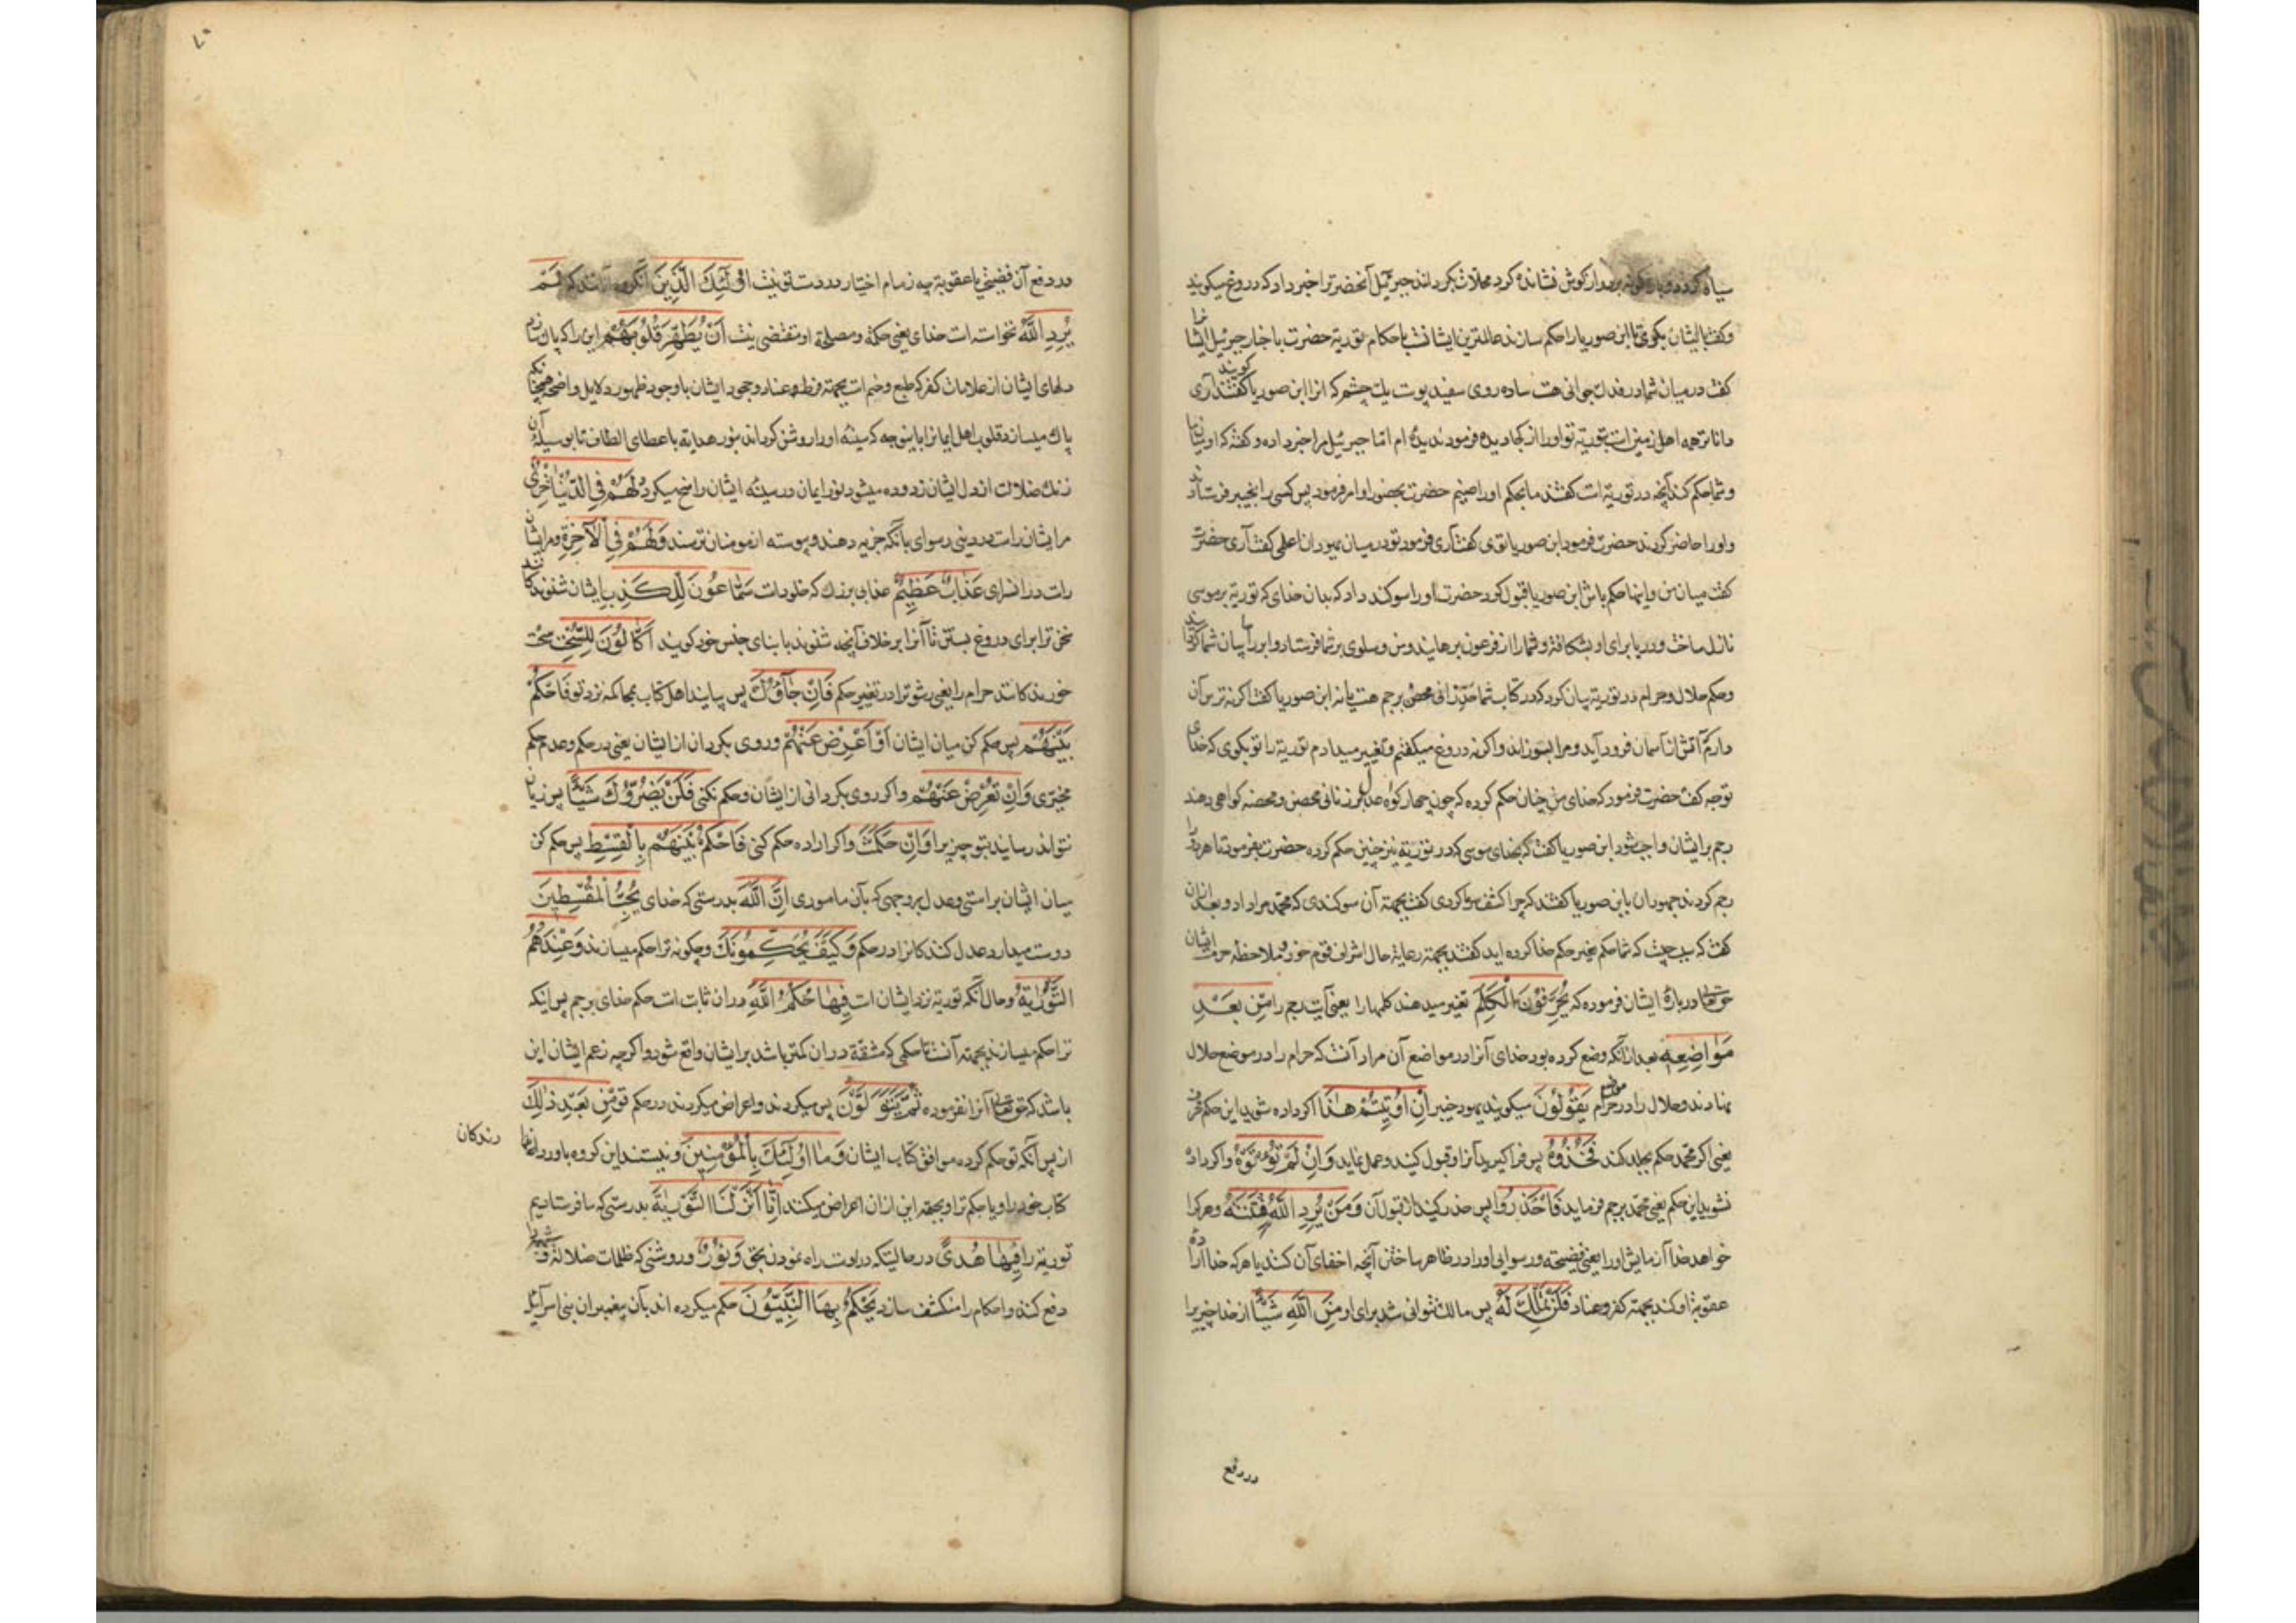 سیاه کرده و باژکونه بر دراز کوش نشانده کرد محلات بکردانند جبرئیل آنحضرترا خبر داد که دروغ میکویند
و کفت با ایشان بکوی تا ابن صوریا را حکم سازند عالمترین ایشانست باحکام توریة حضرت باخبار جبرئیل ایشانرا
کفت در میان شما در فدک جوانی هست ساده روی سفید پوست یک چشم که او را ابن صوریا کویند کفتند آری
داناترین همه اهل زمین است بتوریة تو او را از کجا دیدهٔ فرمود ندیده ام اما جبرئیل مرا خبر داده و کفته که او میان ما
و شما حکم کند آنچه در توریة است کفتند ما بحکم او راضییم حضرت بحضور او امر فرمود پس کسی را بخیبر فرستادند
و او را حاضر کردند حضرت فرمود ابن صوریا توی کفت آری فرمود تو در میان یهودان اعلمی کفت آری حضرت
کفت میان من و اینها حکم باش ابن صوریا قبول کرد حضرت او را سوکند داد که بدان خدای که توریة بر موسی
نازل ساخت و دریا برای او بشکافت و شما را از فرعون برهانید و من و سلوی بر شما فرستاد و ابر را سایبان شما کردانید
و حکم حلال و حرام در توریة بیان کرد که در کتاب شما حد زانی محصن برجم هست یا نه ابن صوریا کفت اکر نه ترس آن
دارم که آتش از آسمان فرود آید و مرا بسوزاند و اکر نه دروغ میکفتم و تغییر میدادم توریة را تو بکوی که خدای
تو چه کفت حضرت فرمود که خدای من چنان حکم کرده که چون چهار کواه عدل بر زنای محصن و محصنه کواهی دهند
رجم بر ایشان واجب شود ابن صوریا کفت که بخدای موسی که در توریة نیز چنین حکم کرده حضرت بفرمود تا هر دو را
رجم کردند جهودان با ابن صوریا کفتند که چرا کشف سر ما کردی کفت بجهة آن سوکندی که محمد مرا داد و بعد از آن
کفت که سبب چیست که شما حکم بغیر حکم خدا کرده اید کفتند بجهة رعایة حال اشراف قوم خود و ملاحظه حرمت ایشان
حق تعالی در بارهٔ ایشان فرموده که یُحَرِّفُونَ الْکَلِمَ تغییر میدهند کلمها را یعنی آیت رجم را مِنْ بَعْدِ
مَوَاضِعِهِ بعد از آنکه وضع کرده بود خدای آنرا در مواضع آن مراد آنست که حرام را در موضع حلال
بنهادند و حلال را در موضع حرام یَقُولُونَ میکویند یهود خیبر اِنْ اُوتِیتُمْ هٰذَا اکر داده شوید این حکم محرف
یعنی اکر محمد حکم بجلد کند فَخُذُوهُ پس فرا کیرید آنرا و قبول کنید و عمل نماید وَاِنْ لَمْ تُؤْتَوْهُ و اکر داده
نشوید این حکم یعنی محمد برجم فرماید فَاحْذَرُوا پس حذر کنید از قبول آن وَمَنْ یُرِدِ اللّٰهُ فِتْنَتَهُ و هر کرا
خواهد خدا آزمایش او را یعنی فضیحة و رسوایی او را در ظاهر ساختن آنچه اخفای آن کنند یا هر که خدا اراده
عقوبة او کند بجهة کفر و عناد فَلَنْ تَمْلِکَ لَهُ پس مالک نتوانی شد برای او مِنَ اللّٰهِ شَیْئًا از خدا چیزیرا
در دفع
در دفع آن فضیحت یا عقوبة چه زمام اختیار در دست تو نیست اُولٰٓئِکَ الَّذِینَ آنکروه آنانند که لَمْ
یُرِدِ اللّٰهُ نخواسته است خدای یعنی حکمة و مصلحة او مقتضی نیست اَنْ یُطَهِّرَ قُلُوبَهُمْ این را که پاک سازد
دلهای ایشان از علامات کفر که طبع و ختم است بجهة فرط و عناد و جحود ایشان با وجود ظهور دلایل واضحه همچنانکه
پاک میسازد قلوب اهل ایمانرا باینوجه که سینه او را روشن کرداند بنور هدایة باعطای الطاف تا بوسیلهٔ آن
زنک ضلالت از دل ایشان زدوده میشود نور ایمان در سینهٔ ایشان راسخ میکردد لَهُمْ فِی الدُّنْیَا خِزْیٌ
مر ایشان راست در دینی رسوای بآنکه جزیه دهند و پیوسته از مومنان ترسند وَلَهُمْ فِی الْآخِرَةِ و مر ایشان
راست در انسرای عَذَابٌ عَظِیمٌ عذابی بزرک که خلود است سَمَّاعُونَ لِلْکَذِبِ ایشان شنوندکانند
سخن ترا برای دروغ بستن تا آنرا بر خلاف آنچه شنوند بابنای جنس خود کویند اَکَّالُونَ لِلسُّحْتِ سخت
خورندکانند حرام را یعنی رشوترا در تغییر حکم فَاِنْ جَآؤُکَ پس بیایند اهل کتاب بمحاکمه نزد تو فَاحْکُمْ
بَیْنَهُمْ پس حکم کن میان ایشان اَوْ اَعْرِضْ عَنْهُمْ و روی بکردان از ایشان یعنی در حکم و عدم حکم
مخیری وَاِنْ تُعْرِضْ عَنْهُمْ و اکر روی بکردانی از ایشان و حکم نکنی فَلَنْ یَضُرُّوکَ شَیْئًا پس زیان
نتوانند رسانید بتو چیزیرا وَاِنْ حَکَمْتَ و اکر اراده حکم کنی فَاحْکُمْ بَیْنَهُمْ بِالْقِسْطِ پس حکم کن
میان ایشان براستی و عدل بر وجهی که بآن ماموری اِنَّ اللّٰهَ بدرستی که خدای یُحِبُّ الْمُقْسِطِینَ
دوست میدارد عدل کنندکانرا در حکم وَکَیْفَ یُحَکِّمُونَکَ و چکونه ترا حکم میسازند وَعِنْدَهُمُ
التَّوْرٰیةُ و حال آنکه توریة نزد ایشان است فِیهَا حُکْمُ اللّٰهِ در ان ثابت است حکم خدای برجم پس اینکه
ترا حکم میسازند بجهة آنست تا حکمی که مشقة در ان کمتر باشد بر ایشان واقع شود و اکرچه زعم ایشان این
باشد که حق تعالی آنرا نفرموده ثُمَّ یَتَوَلَّوْنَ پس میکردند و اعراض میکردند در حکم تو مِنْ بَعْدِ ذٰلِکَ
از پس آنکه تو حکم کرده موافق کتاب ایشان وَمَا اُولٰٓئِکَ بِالْمُؤْمِنِینَ و نیستند این کروه باور دارندکان
کتاب خود را و یا حکم ترا و بجهة این از ان اعراض میکنند اِنَّا اَنْزَلْنَا التَّوْرٰیةَ بدرستی که ما فرستادیم
توریة را فِیهَا هُدًی در حالیتکه در اوست راه نمودن بحق وَنُورٌ و روشنی که ظلمات ضلالة و
دفع کند و احکام را منکشف سازد یَحْکُمُ بِهَا النَّبِیُّونَ حکم میکرده اند بآن پیغمبران بنی اسرآئیل